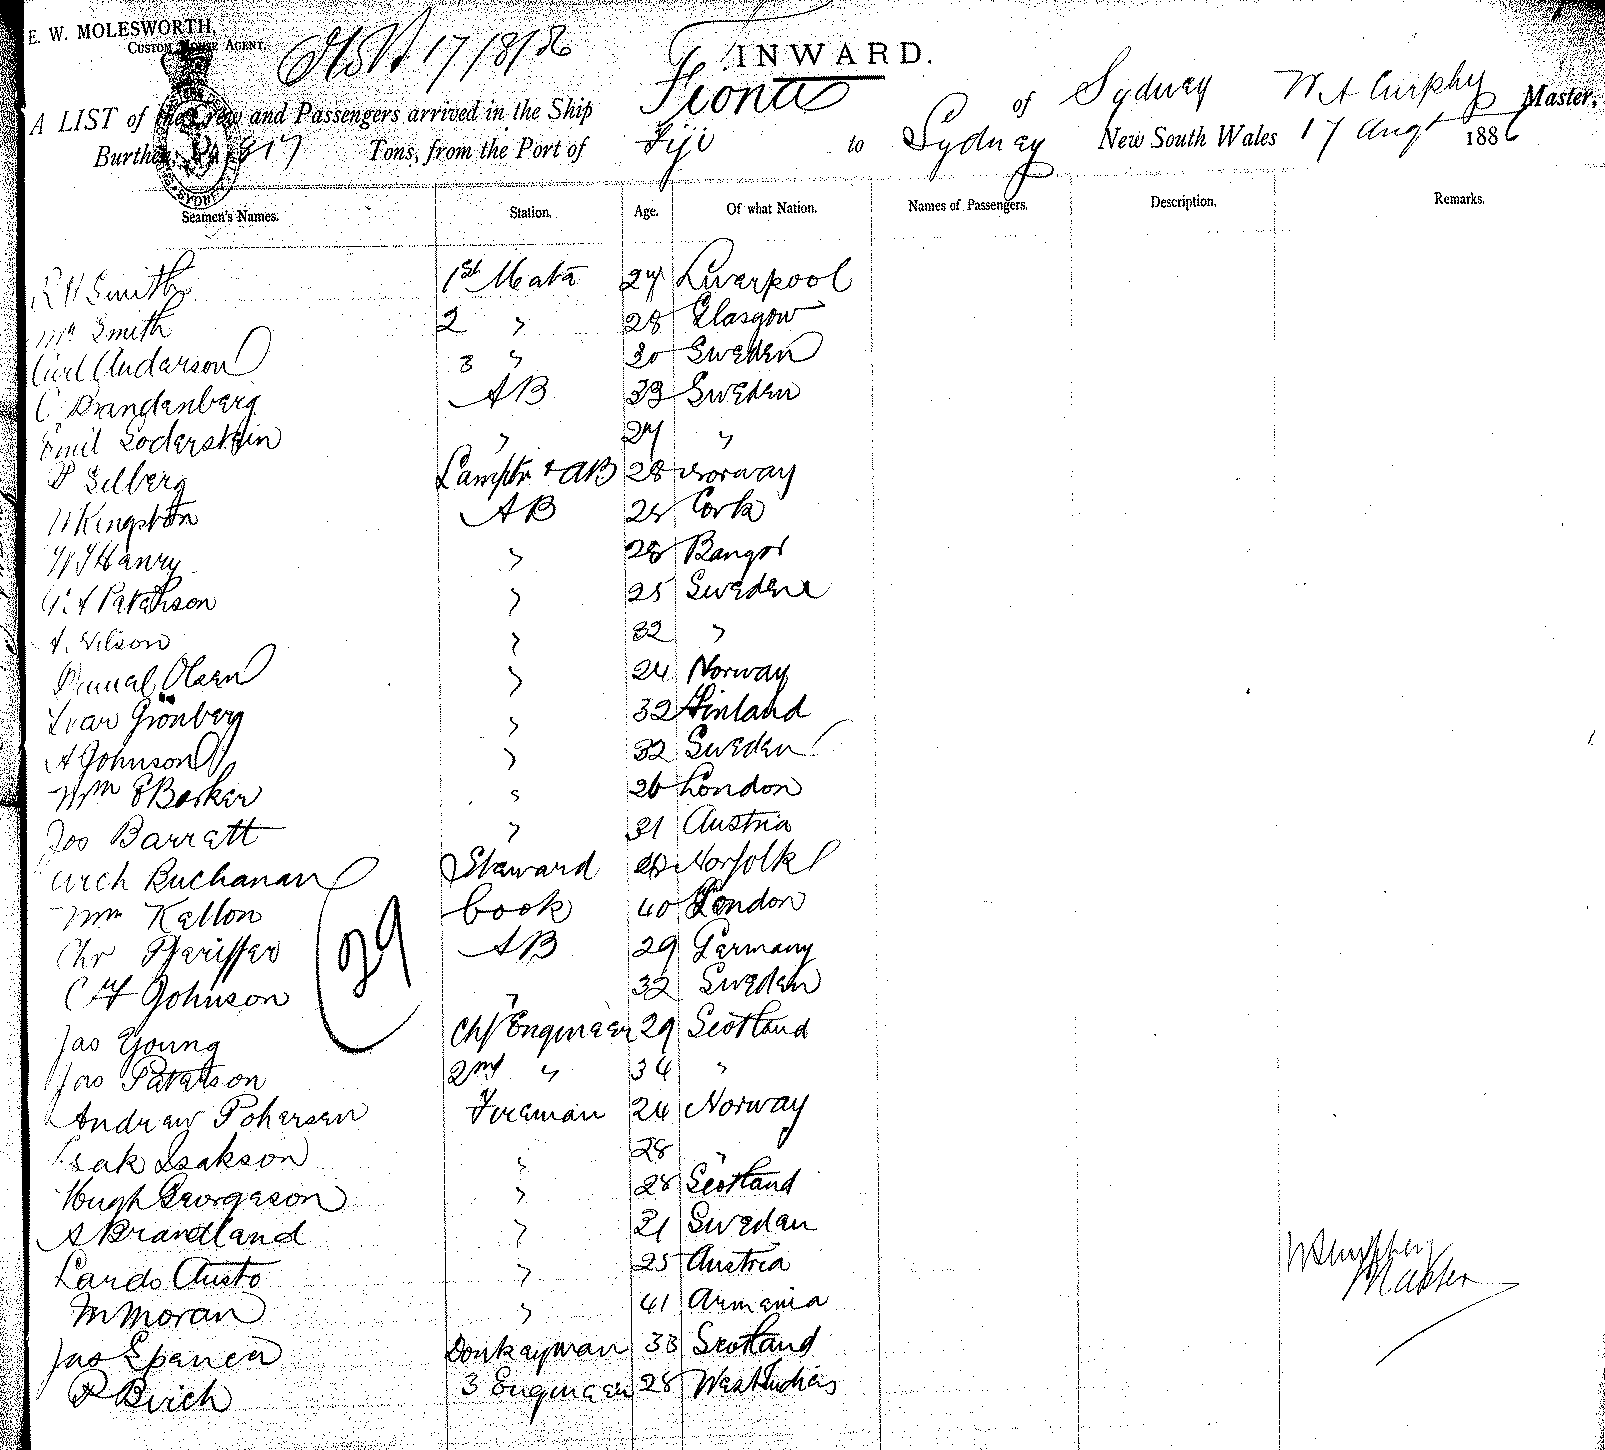 E. W. MOLESWORTH,
CUSTOM HOUSE AGENT,
17/8/86
INWARD.
A LIST of the Crew and Passengers arrived in the Ship Fiona of Sydney W A Curphy Master,
Burthen, 817 Tons, from the Port of Fiji to Sydney New South Wales 17 Augt 1886
Seamen's Names. Station. Age. Of what Nation. Names of Passengers. Description. Remarks.
R H Smith 1st Mate 24 Liverpool
Smith 2 " 28 Glasgow
Carl Anderson 3 " 30 Sweden
C Brandenberg AB 33 Sweden
Emil Soderstein " 24 "
P Selberg Lamptr & AB 28 Norway
W Kingston AB 28 Cork
W J Henry " 28 Bangor
Paterson " 25 Sweden
A. Nilson " 32 "
Olsen " 24 Norway
Ivar Grönberg " 32 Finland
A Johnson " 32 Sweden
Wm Barker " 26 London
Jos Barrett " 31 Austria
Arch Buchanan Steward Norfolk
Wm Kellon Cook 40 London
Chr AB 29 Germany
C H Johnson " 32 Sweden
29
Jas Young Chf Engineer 29 Scotland
Jas Paterson 2nd " 34 "
Andrew Pehersen Fireman 24 Norway
Isak Isakson " 28 "
Hugh Georgeson " 28 Scotland
A Brandland " 21 Sweden
Lardo Austo " 25 Austria
M Moran " 41 Armenia
Jas Spence Donkeyman 33 Scotland
P Birch 3 Engineer 28 West Indies
Master